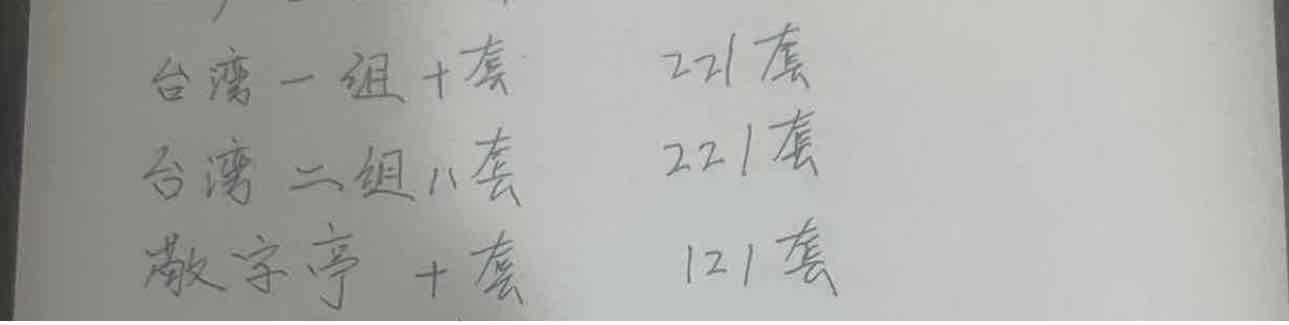 台湾一组十套 221套
台湾二组八套 221套
散字亭 十套 121套